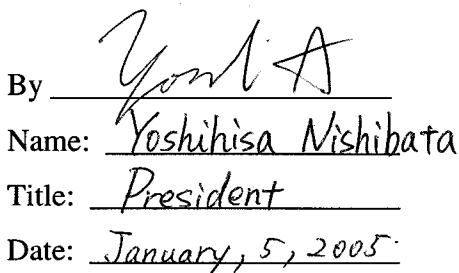 By
Name: Yoshihisa Nishibata
Title: President
Date: January, 5, 2005